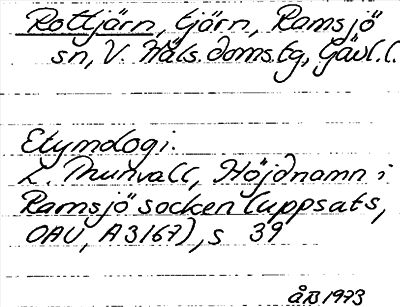 Rottjärn, tjärn, Ramsjö
sn, V. Häls. doms.tg, Gävl.l.
Etymologi:
L. Thunvall, Höjdnamn i
Ramsjö socken (uppsats,
OAU, A3167), s 39
åB 1973